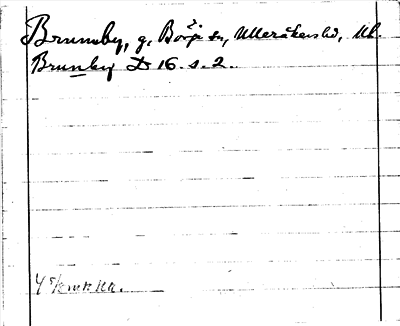 Brunnby, g, Börje sn, Ulleråkers hd, Ul.
Brunby D 16. s. 2.